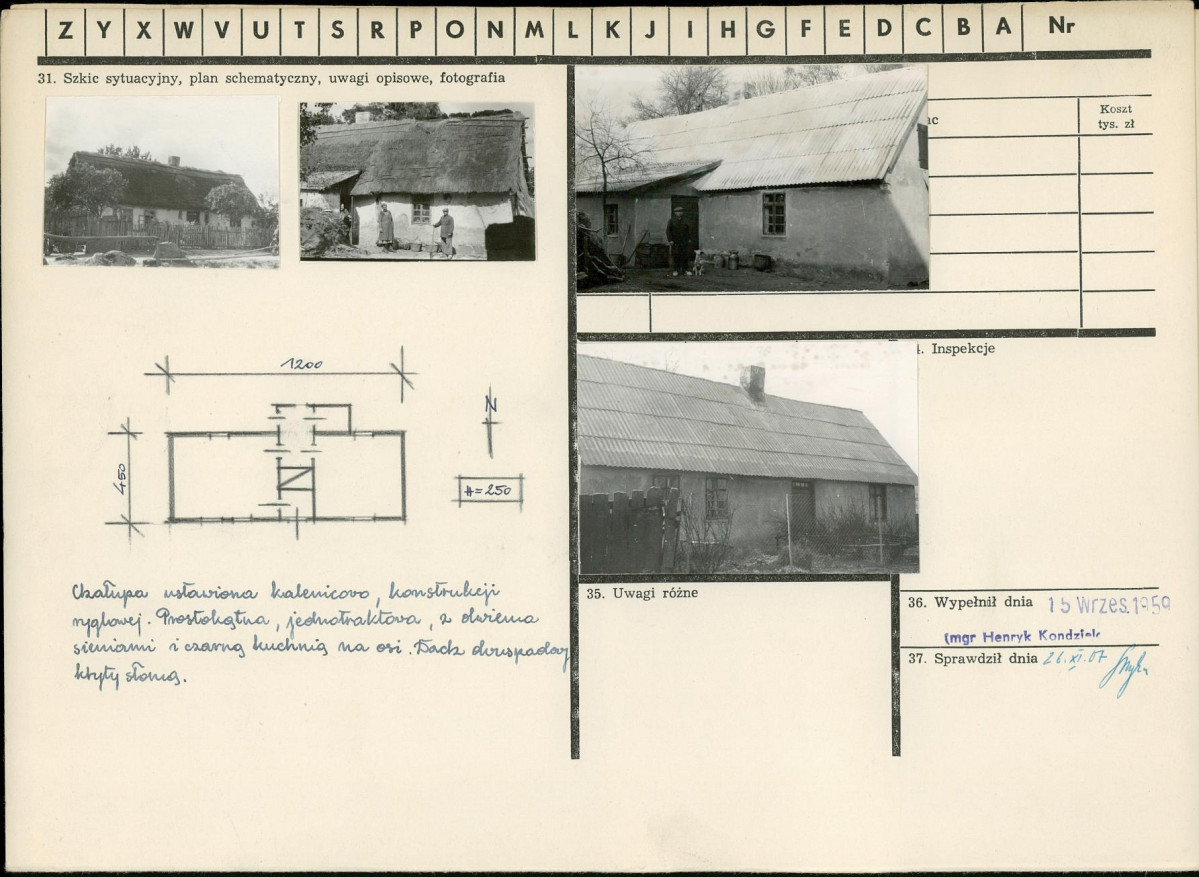 Z Y X W V U T S R P O N M L K J I H G F E D C B A Nr
31. Szkic sytuacyjny, plan schematyczny, uwagi opisowe, fotografia
ac
Koszt
tys. zł
1200
N
450
H=250
Chałupa ustawiona kalenicowo, konstrukcji
ryglowej. Prostokątna, jednotraktowa, z dwiema
sieniami i czarną kuchnią na osi. Dach dwuspadowy
kryty słomą.
4. Inspekcje
35. Uwagi różne
36. Wypełnił dnia 15 Wrzes. 1959
(mgr Henryk Kondziel
37. Sprawdził dnia 26.XI.07